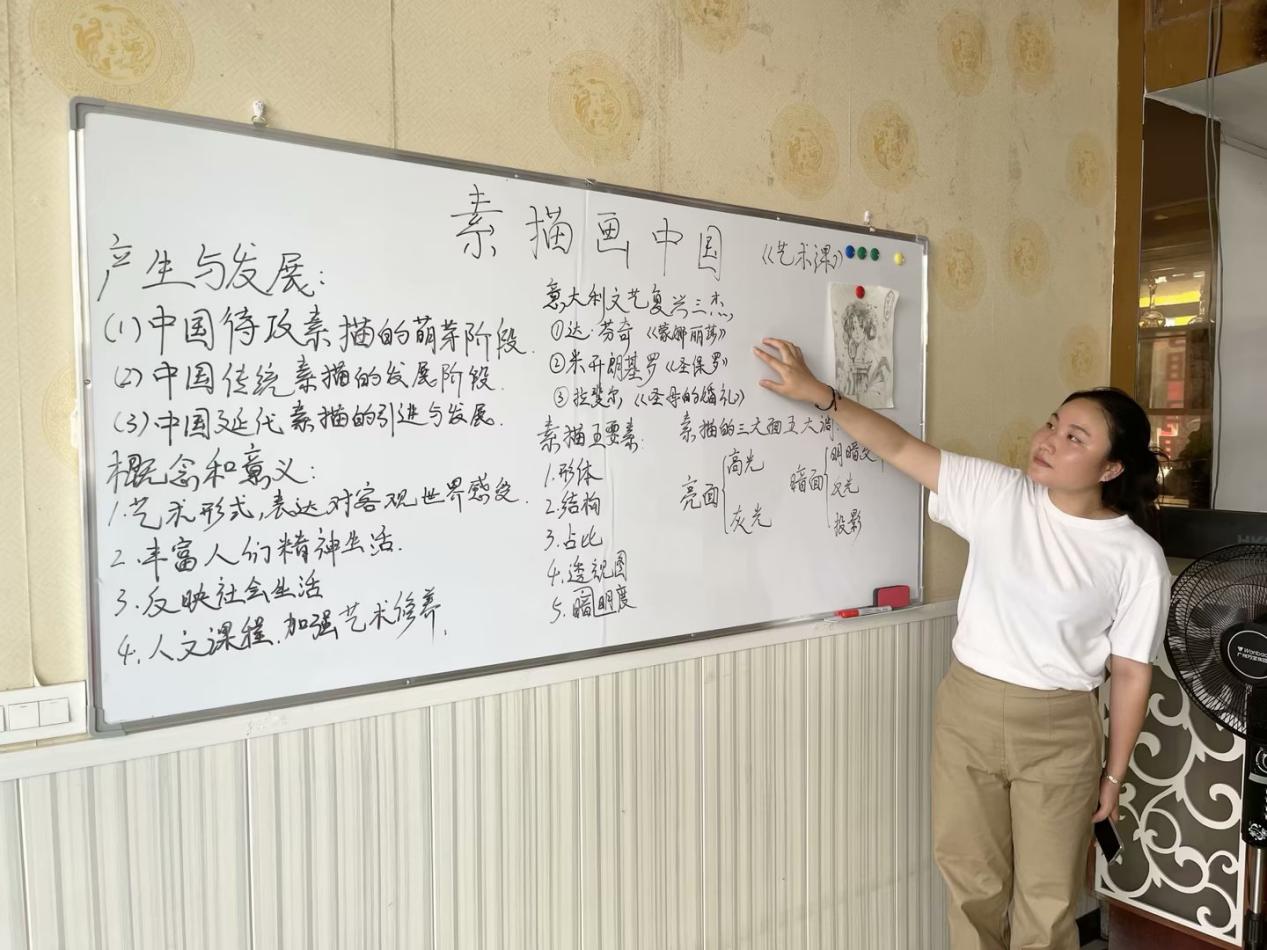 素描画中国 《艺术课》
产生与发展:
(1)中国传攻素描的萌芽阶段.
(2)中国传统素描的发展阶段.
(3)中国近代素描的引进与发展.
概念和意义:
1.艺术形式,表达对客观世界感受
2.丰富人们精神生活.
3.反映社会生活
4.人文课程.加强艺术修养.
意大利文艺复兴三杰,
①达·芬奇《蒙娜丽莎》
②米开朗基罗《圣保罗》
③拉斐尔,《圣母的婚礼》
素描五要素:
1.形体
2.结构
3.占比
4.透视图
5.暗明度
素描的三大面五大调
亮面 高光
灰光
暗面 明暗交
反光
投影